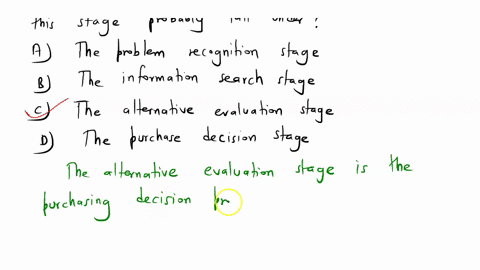 this stage probably fall under?
A) The problem recognition stage
B) The information search stage
C) The alternative evaluation stage
D) The purchase decision stage
The alternative evaluation stage is the
purchasing decision pr